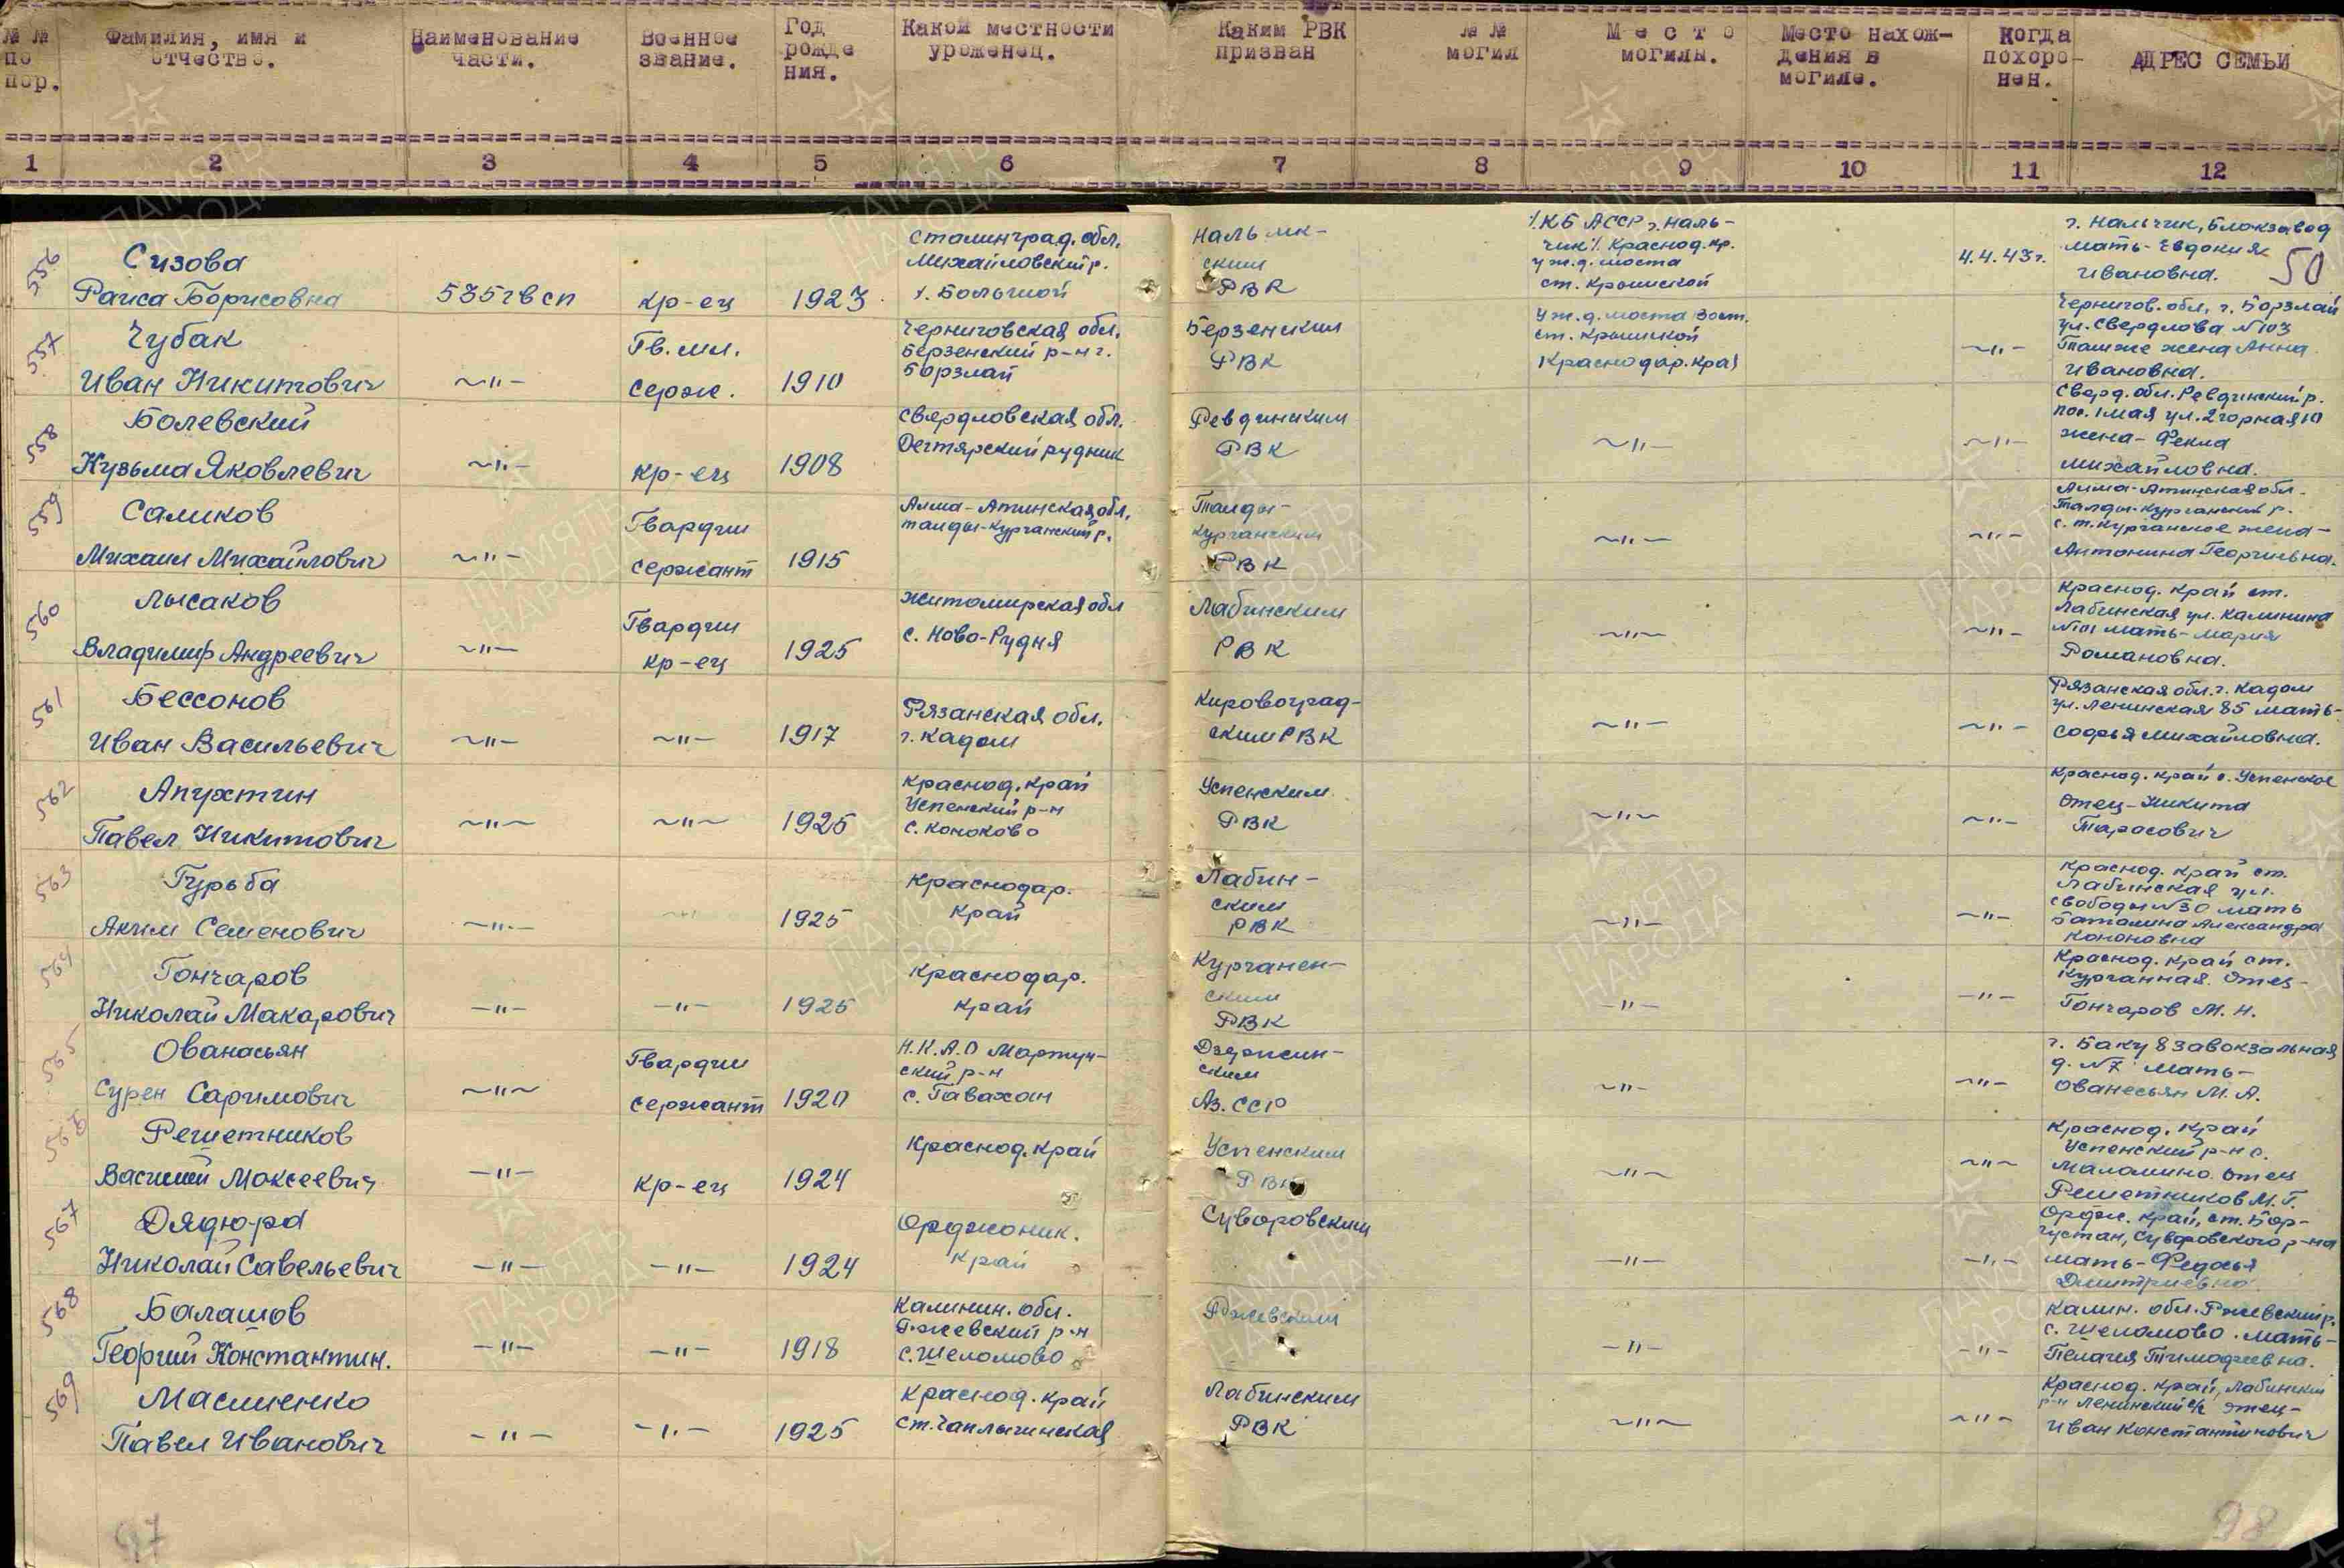 № № по пор.
Фамилия, имя и отчество.
Наименование части.
Военное звание.
Год рожде ния.
Какой местности уроженец.
Каким РВК призван
№ № могил
Место могилы.
Место нахождения в могиле.
Когда похоронен.
АДРЕС СЕМЬИ
1 2 3 4 5 6 7 8 9 10 11 12
50
556 Сизова
Раиса Борисовна
535 гв сп
кр-ец
1923
Сталинград. обл.
Михайловский р.
х. Большой
Нальчик-
ским
РВК
/КБ АССР г. Наль-
чик/. Краснод. кр.
у ж.д. моста
ст. Крымской
4.4.43г.
г. Нальчик, Блокзавод
мать - Евдокия
Ивановна.
557 Чубак
Иван Никитович
~"-
Гв. мл.
серж.
1910
Черниговская обл.
Берзенский р-н г.
Борзлай
Берзенским
РВК
У ж.д. моста вост.
ст. Крымской
Краснодар. края
~"-
Чернигов. обл. г. Борзлай
ул. Свердлова №103
Тамже жена Анна
Ивановна.
558 Болевский
Кузьма Яковлевич
~"-
кр-ец
1908
Свердловская обл.
Дегтярский рудник
Ревдинским
РВК
~"-
~"-
Сверд. обл. Ревдинский р.
пос. 1 мая ул. 2 горная 10
жена - Фекла
Михайловна.
559 Саликов
Михаил Михайлович
~"-
Гвардии
сержант
1915
Алма-Атинская обл.
талды-Курганский р.
Талды-
курганским
РВК
~"-
~"-
Алма-Атинская обл.
Талды-Курганский р.
с. т. Курганское жена -
Антонина Георгиевна.
560 Лысаков
Владимир Андреевич
~"-
Гвардии
кр-ец
1925
Житомирская обл
с. Ново-Рудня
Лабинским
РВК
~"~
~"-
Краснод. край ст.
Лабинская ул. Калинина
№101 мать - Мария
Романовна.
561 Бессонов
Иван Васильевич
~"-
~"-
1917
Рязанская обл.
г. Кадом
Кировоград-
ским РВК
~"-
~"-
Рязанская обл. г. Кадом
ул. Ленинская 85 мать -
Софья Михайловна.
562 Апухтин
Павел Никитович
~"~
~"~
1925
Краснод. край
Успенский р-н
с. Коноково
Успенским
РВК
~"~
~"-
Краснод. край с. Успенское
Отец - Никита
Тарасович
563 Гурьба
Аким Семенович
~"-
~"-
1925
Краснодар.
край
Лабин-
ским
РВК
~"-
~"-
Краснод. край ст.
Лабинская ул.
Свободы №30 мать
Баталина Александра
Кононовна
564 Гончаров
Николай Макарович
-"-
-"-
1925
Краснодар.
край
Курганен-
ским
РВК
-"-
-"-
Краснод. край ст.
Курганная. Отец -
Гончаров М. Н.
565 Ованасьян
Сурен Саримович
~"~
Гвардии
сержант
1920
Н.К.А.О Мартун-
ский р-н
с. Гавахан
Дзержин-
ским
Аз. ССР
~"-
~"-
г. Баку 8 завокзальная
д. №7 мать -
Ованесьян М. А.
566 Решетников
Василий Моксеевич
-"-
кр-ец
1924
Краснод. край
Успенским
РВК
~"~
~"~
Краснод. край
Успенский р-н с.
Маламино. Отец
Решетников М. Г.
567 Дядюра
Николай Савельевич
-"-
-"-
1924
Орджоник.
край
Суворовским
-"-
-"-
Ордж. край, ст. Бор-
густан, Суворовского р-на
мать - Федосья
Дмитриевна
568 Балашов
Георгий Константин.
-"-
-"-
1918
Калинин. обл.
Ржевский р-н
с. Шеломово
Ржевским
-"-
-"-
Калин. обл. Ржевский р.
с. Шеломово. Мать -
Пелагея Тимофеевна.
569 Маслиенко
Павел Иванович
-"-
-"-
1925
Краснод. край
ст. Чаплыгинская
Лабинским
РВК
~"~
~"-
Краснод. край, Лабинский
р-н Ленинский с/с отец -
Иван Константинович
97
98
ПАМЯТЬ НАРОДА